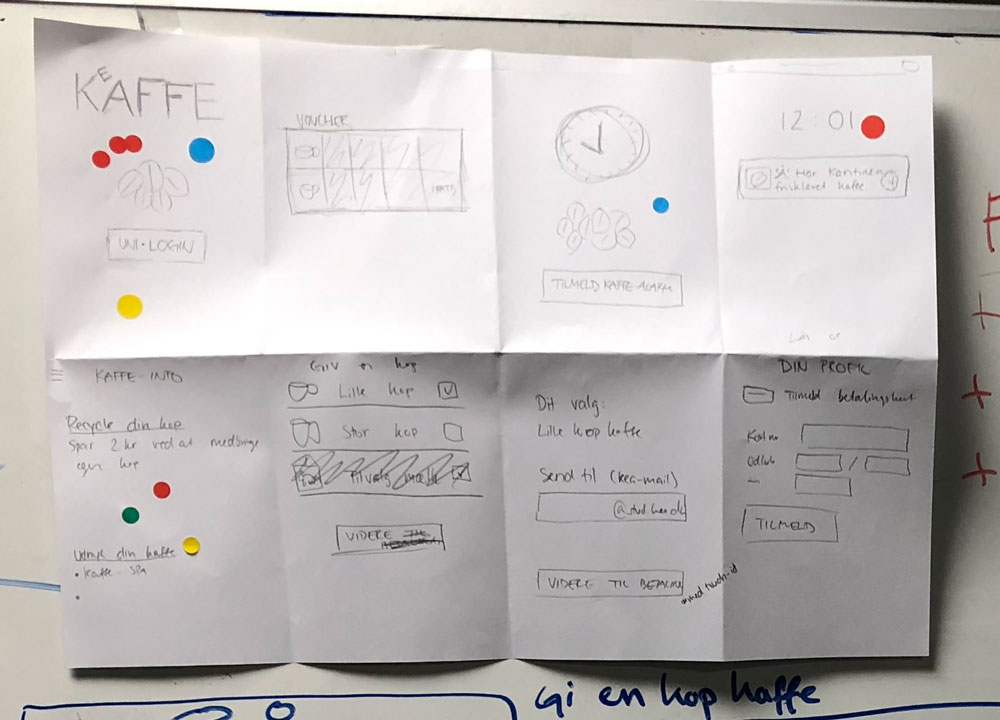 KEAFFE
UNI-LOGIN
VOUCHER
TILMELD KAFFE-ALARM
12:01
SÅ! Har Kantinen
friskla​vet kaffe.
KAFFE-INFO
Recycle din kop
Spar 2 kr ved at medbringe
egen kop
din kaffe
• Kaffe-
•
Giv en kop
Lille kop
Stor kop
VIDERE
Dit valg:
Lille kop kaffe
Send til (kea-mail)
@stud.kea.dk
VIDERE TIL BETALING
DIN PROFIL
Tilmeld betalingskort
Kort nr.
Udløb
/
TILMELD
Gi en kop kaffe